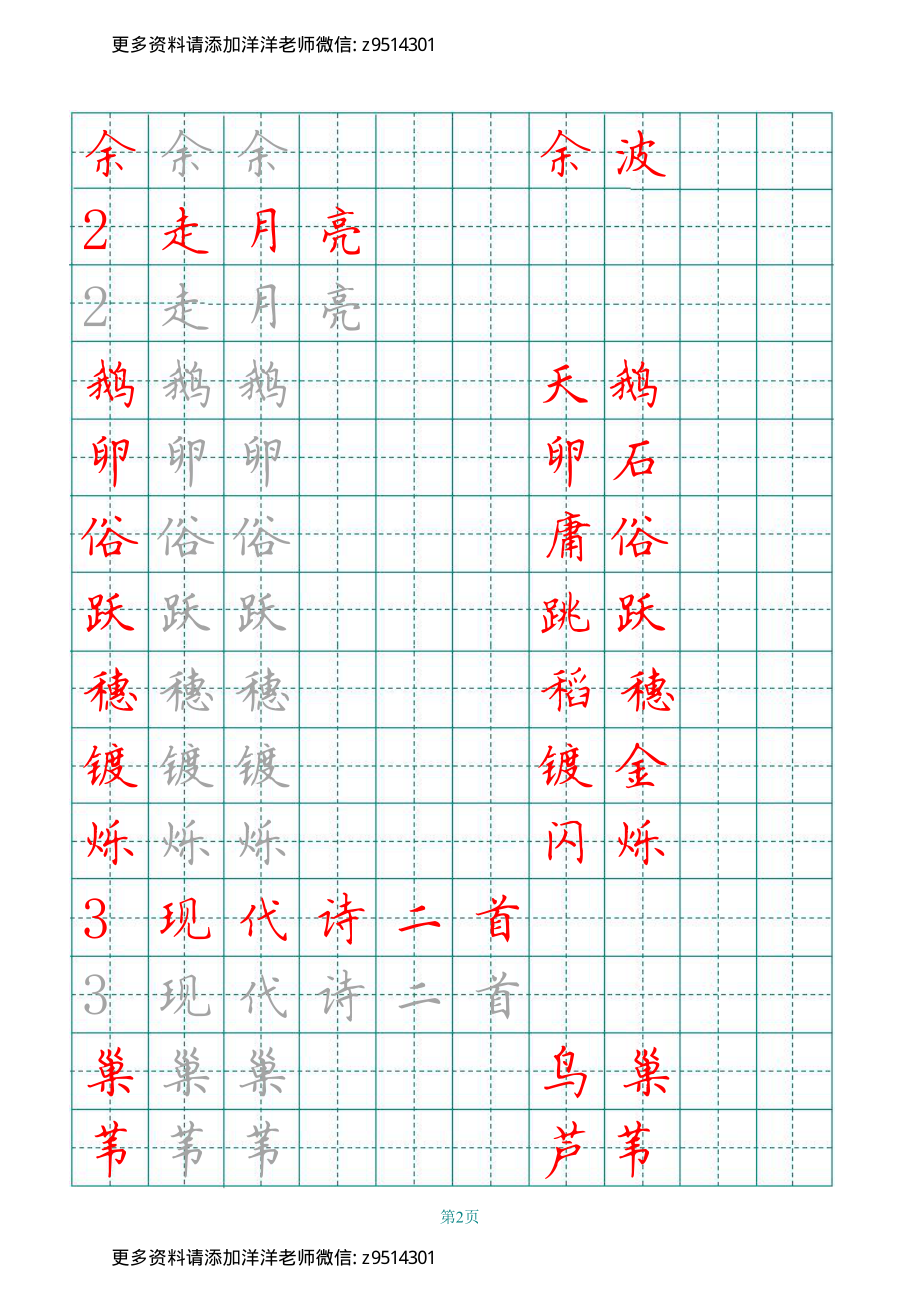 更多资料请添加洋洋老师微信: z9514301
余 余 余 余 波
2 走 月 亮
2 走 月 亮
鹅 鹅 鹅 天 鹅
卵 卵 卵 卵 石
俗 俗 俗 庸 俗
跃 跃 跃 跳 跃
穗 穗 穗 稻 穗
镀 镀 镀 镀 金
烁 烁 烁 闪 烁
3 现 代 诗 二 首
3 现 代 诗 二 首
巢 巢 巢 鸟 巢
苇 苇 苇 芦 苇
第2页
更多资料请添加洋洋老师微信: z9514301